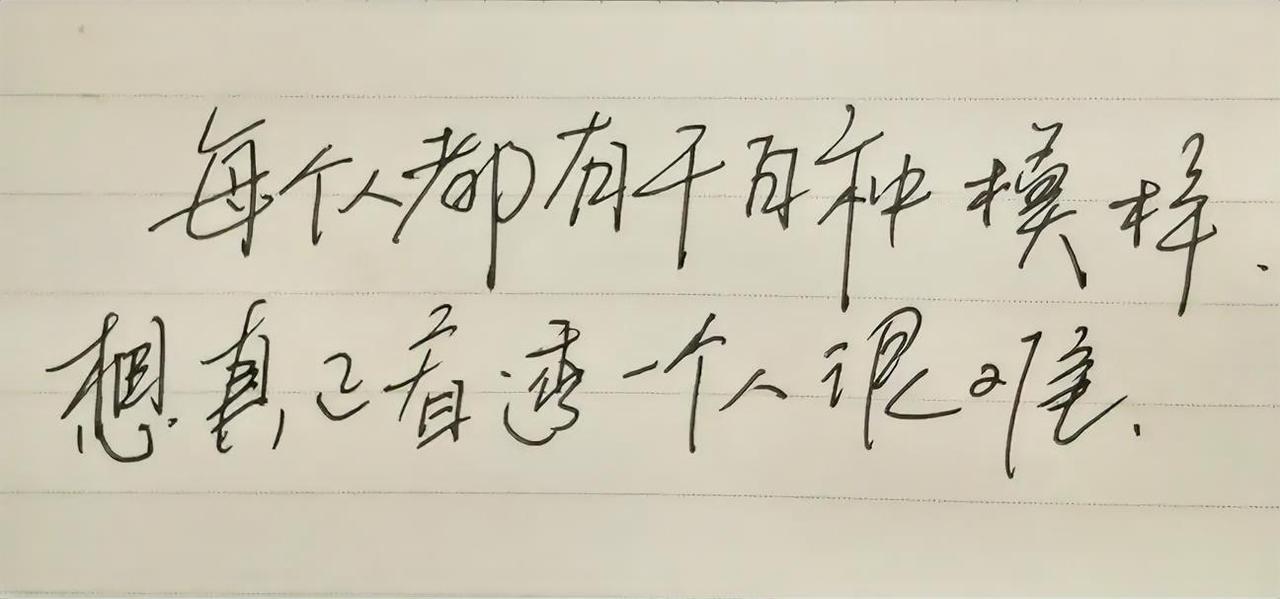 每个人都有千百种模样、
想真正看透一个人很难.